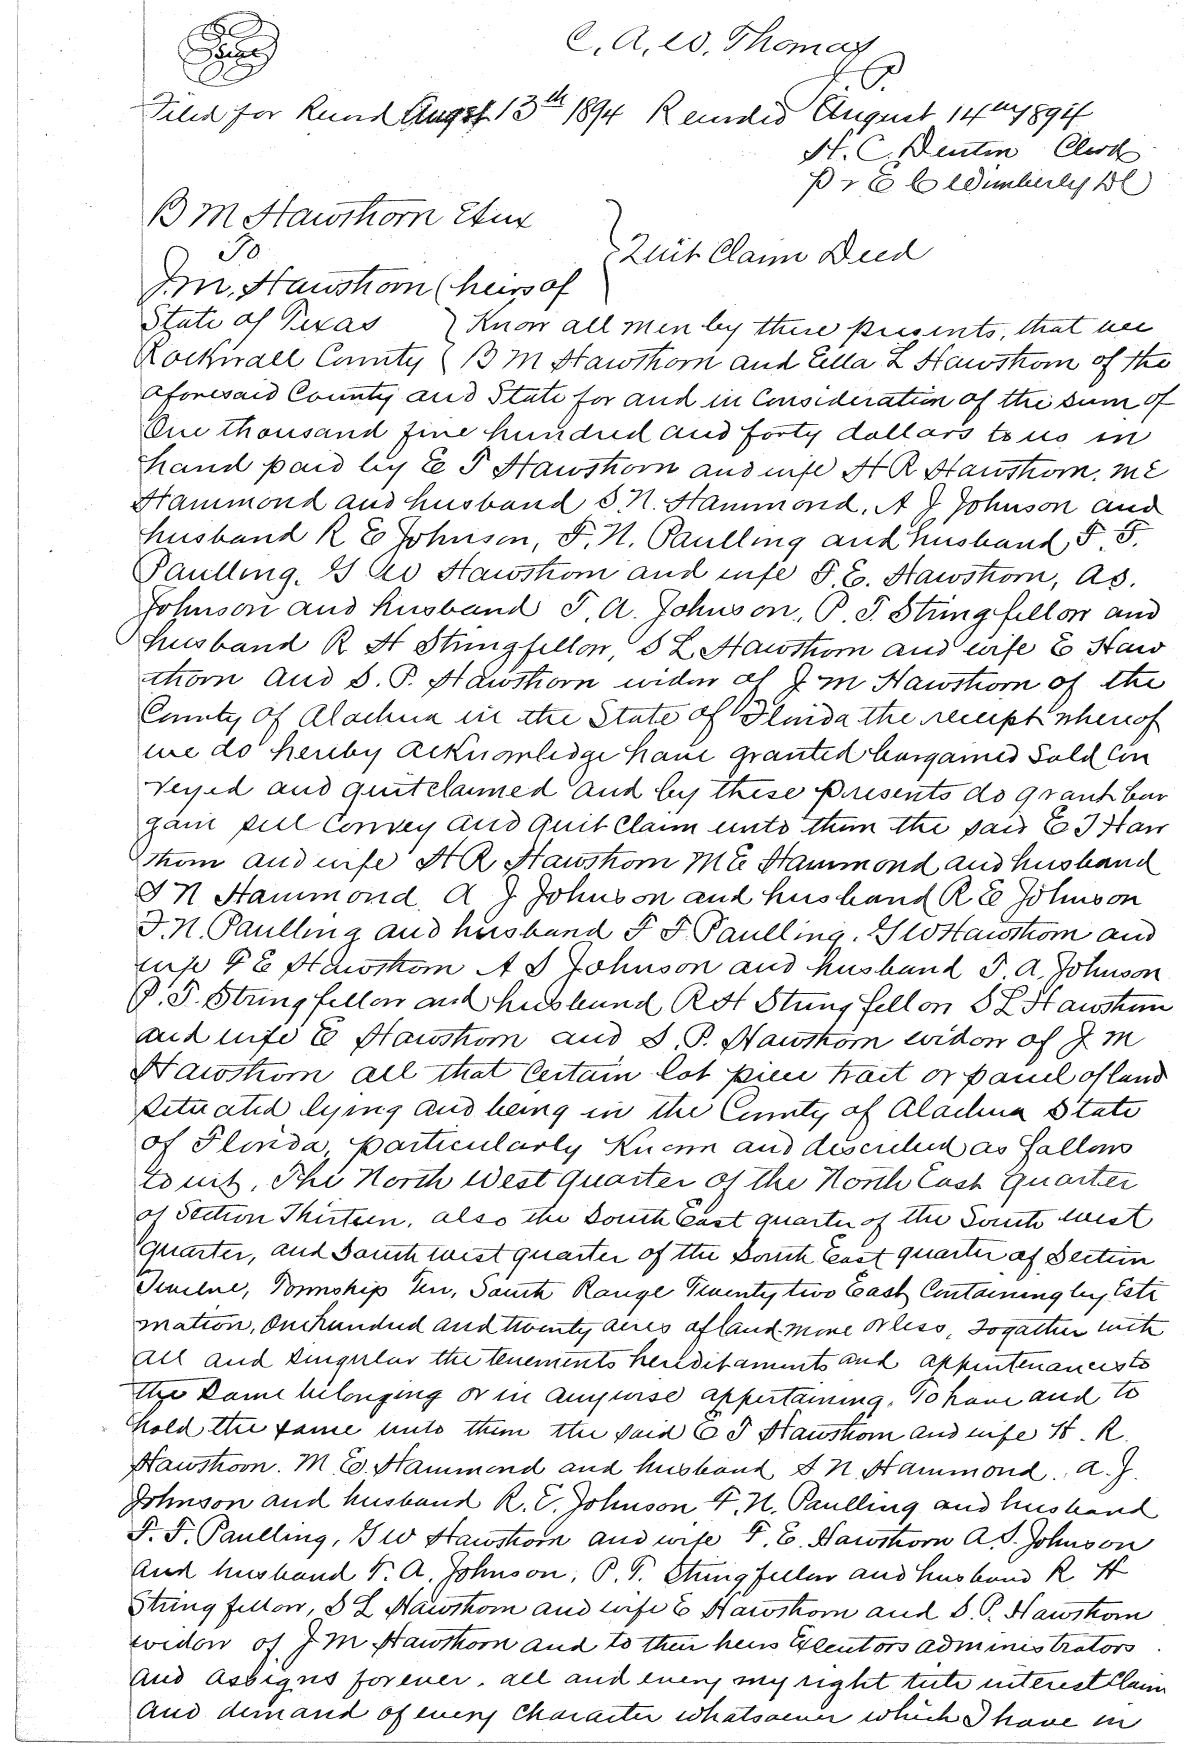 Seal
C. A. W. Thomas
J P
Filed for Record August 13th 1894 Recorded August 14th 1894
H. C. Denton Clerk
pr E C Wimberly DC
B M Hawthorn Etux
To
J. M. Hawthorn (heirs of
Quit Claim Deed
State of Texas } Know all men by these presents, that we
Rockwall County { B M Hawthorn and Ella L Hawthorn of the
aforesaid County and State for and in Consideration of the Sum of
One thousand five hundred and forty dollars to us in
hand paid by E T Hawthorn and wife H R Hawthorn. M E
Hammond and husband S. N. Hammond, A J Johnson and
husband R E Johnson, F. N. Paulling and husband F. F.
Paulling. G W Hawthorn and wife F. E. Hawthorn, A S.
Johnson and husband T. A. Johnson, P. T. Stringfellow and
husband R H Stringfellow, S L Hawthorn and wife E Haw
thorn and S. P. Hawthorn widow of J M Hawthorn of the
County of Alachua in the State of Florida the receipt whereof
we do hereby acknowledge have granted bargained Sold Con
veyed and quitclaimed and by these presents do grant bar
gain sell Convey and Quit Claim unto them the said E T Haw
thorn and wife H R Hawthorn M E Hammond and husband
S N Hammond A J Johnson and husband R E Johnson
F. N. Paulling and husband F F Paulling. G W Hawthorn and
wife F E Hawthorn A S Johnson and husband T. A. Johnson
P. T. Stringfellow and husband R H Stringfellow S L Hawthorn
and wife E Hawthorn and S. P. Hawthorn widow of J M
Hawthorn all that Certain lot piece tract or parcel of land
situated lying and being in the County of Alachua State
of Florida, particularly Known and described as follows
towit, The North West quarter of the North East quarter
of Section Thirteen, also the South East quarter of the South west
quarter, and South west quarter of the South East quarter of Section
Twelve, Township Ten, South Range Twenty two East Containing by Esti
mation, One hundred and twenty acres of land more or less, Together with
all and singular the tenements hereditaments and appurtenances to
the same belonging or in anywise appertaining, To have and to
hold the same unto them the said E T Hawthorn and wife H. R.
Hawthorn. M. E. Hammond and husband S N Hammond. A. J.
Johnson and husband R. E. Johnson F. N. Paulling and husband
F. F. Paulling, G W Hawthorn and wife F. E. Hawthorn A. S. Johnson
and husband T. A. Johnson, P. T. Stringfellow and husband R H
Stringfellow, S L Hawthorn and wife E Hawthorn and S. P. Hawthorn
widow of J M Hawthorn and to their heirs Executors administrators
and assigns forever. all and every my right title interest Claim
and demand of every Character whatsoever which I have in